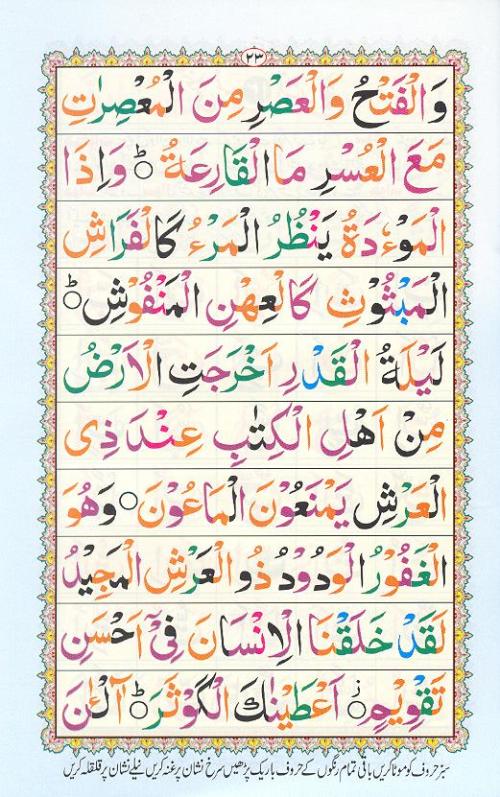 ٢٣
وَالْفَتْحُ وَالْعَصْرِ مِنَ الْمُعْصِرٰتِ
مَعَ الْعُسْرِ مَا الْقَارِعَةُ ؕ وَاِذَا
الْمَوْءٗدَةُ يَنْظُرُ الْمَرْءُ كَالْفَرَاشِ
الْمَبْثُوْثِ كَالْعِهْنِ الْمَنْفُوْشِ ؕ
لَيْلَةُ الْقَدْرِ اَخْرَجَتِ الْاَرْضُ
مِنْ اَهْلِ الْكِتٰبِ عِنْدَ ذِى
الْعَرْشِ يَمْنَعُوْنَ الْمَاعُوْنَ ○ وَهُوَ
الْغَفُوْرُ الْوَدُوْدُ ذُو الْعَرْشِ الْمَجِيْدُ
لَقَدْ خَلَقْنَا الْاِنْسَانَ فِىْٓ اَحْسَنِ
تَقْوِيْمٍ ○ اَعْطَيْنٰكَ الْكَوْثَرَ ؕ آٰلْـٰٔنَ
سبز حروف کو موٹا کریں باقی تمام رنگوں کے حروف باریک پڑھیں سرخ نشان پر غنہ کریں نیلے نشان پر قلقلہ کریں